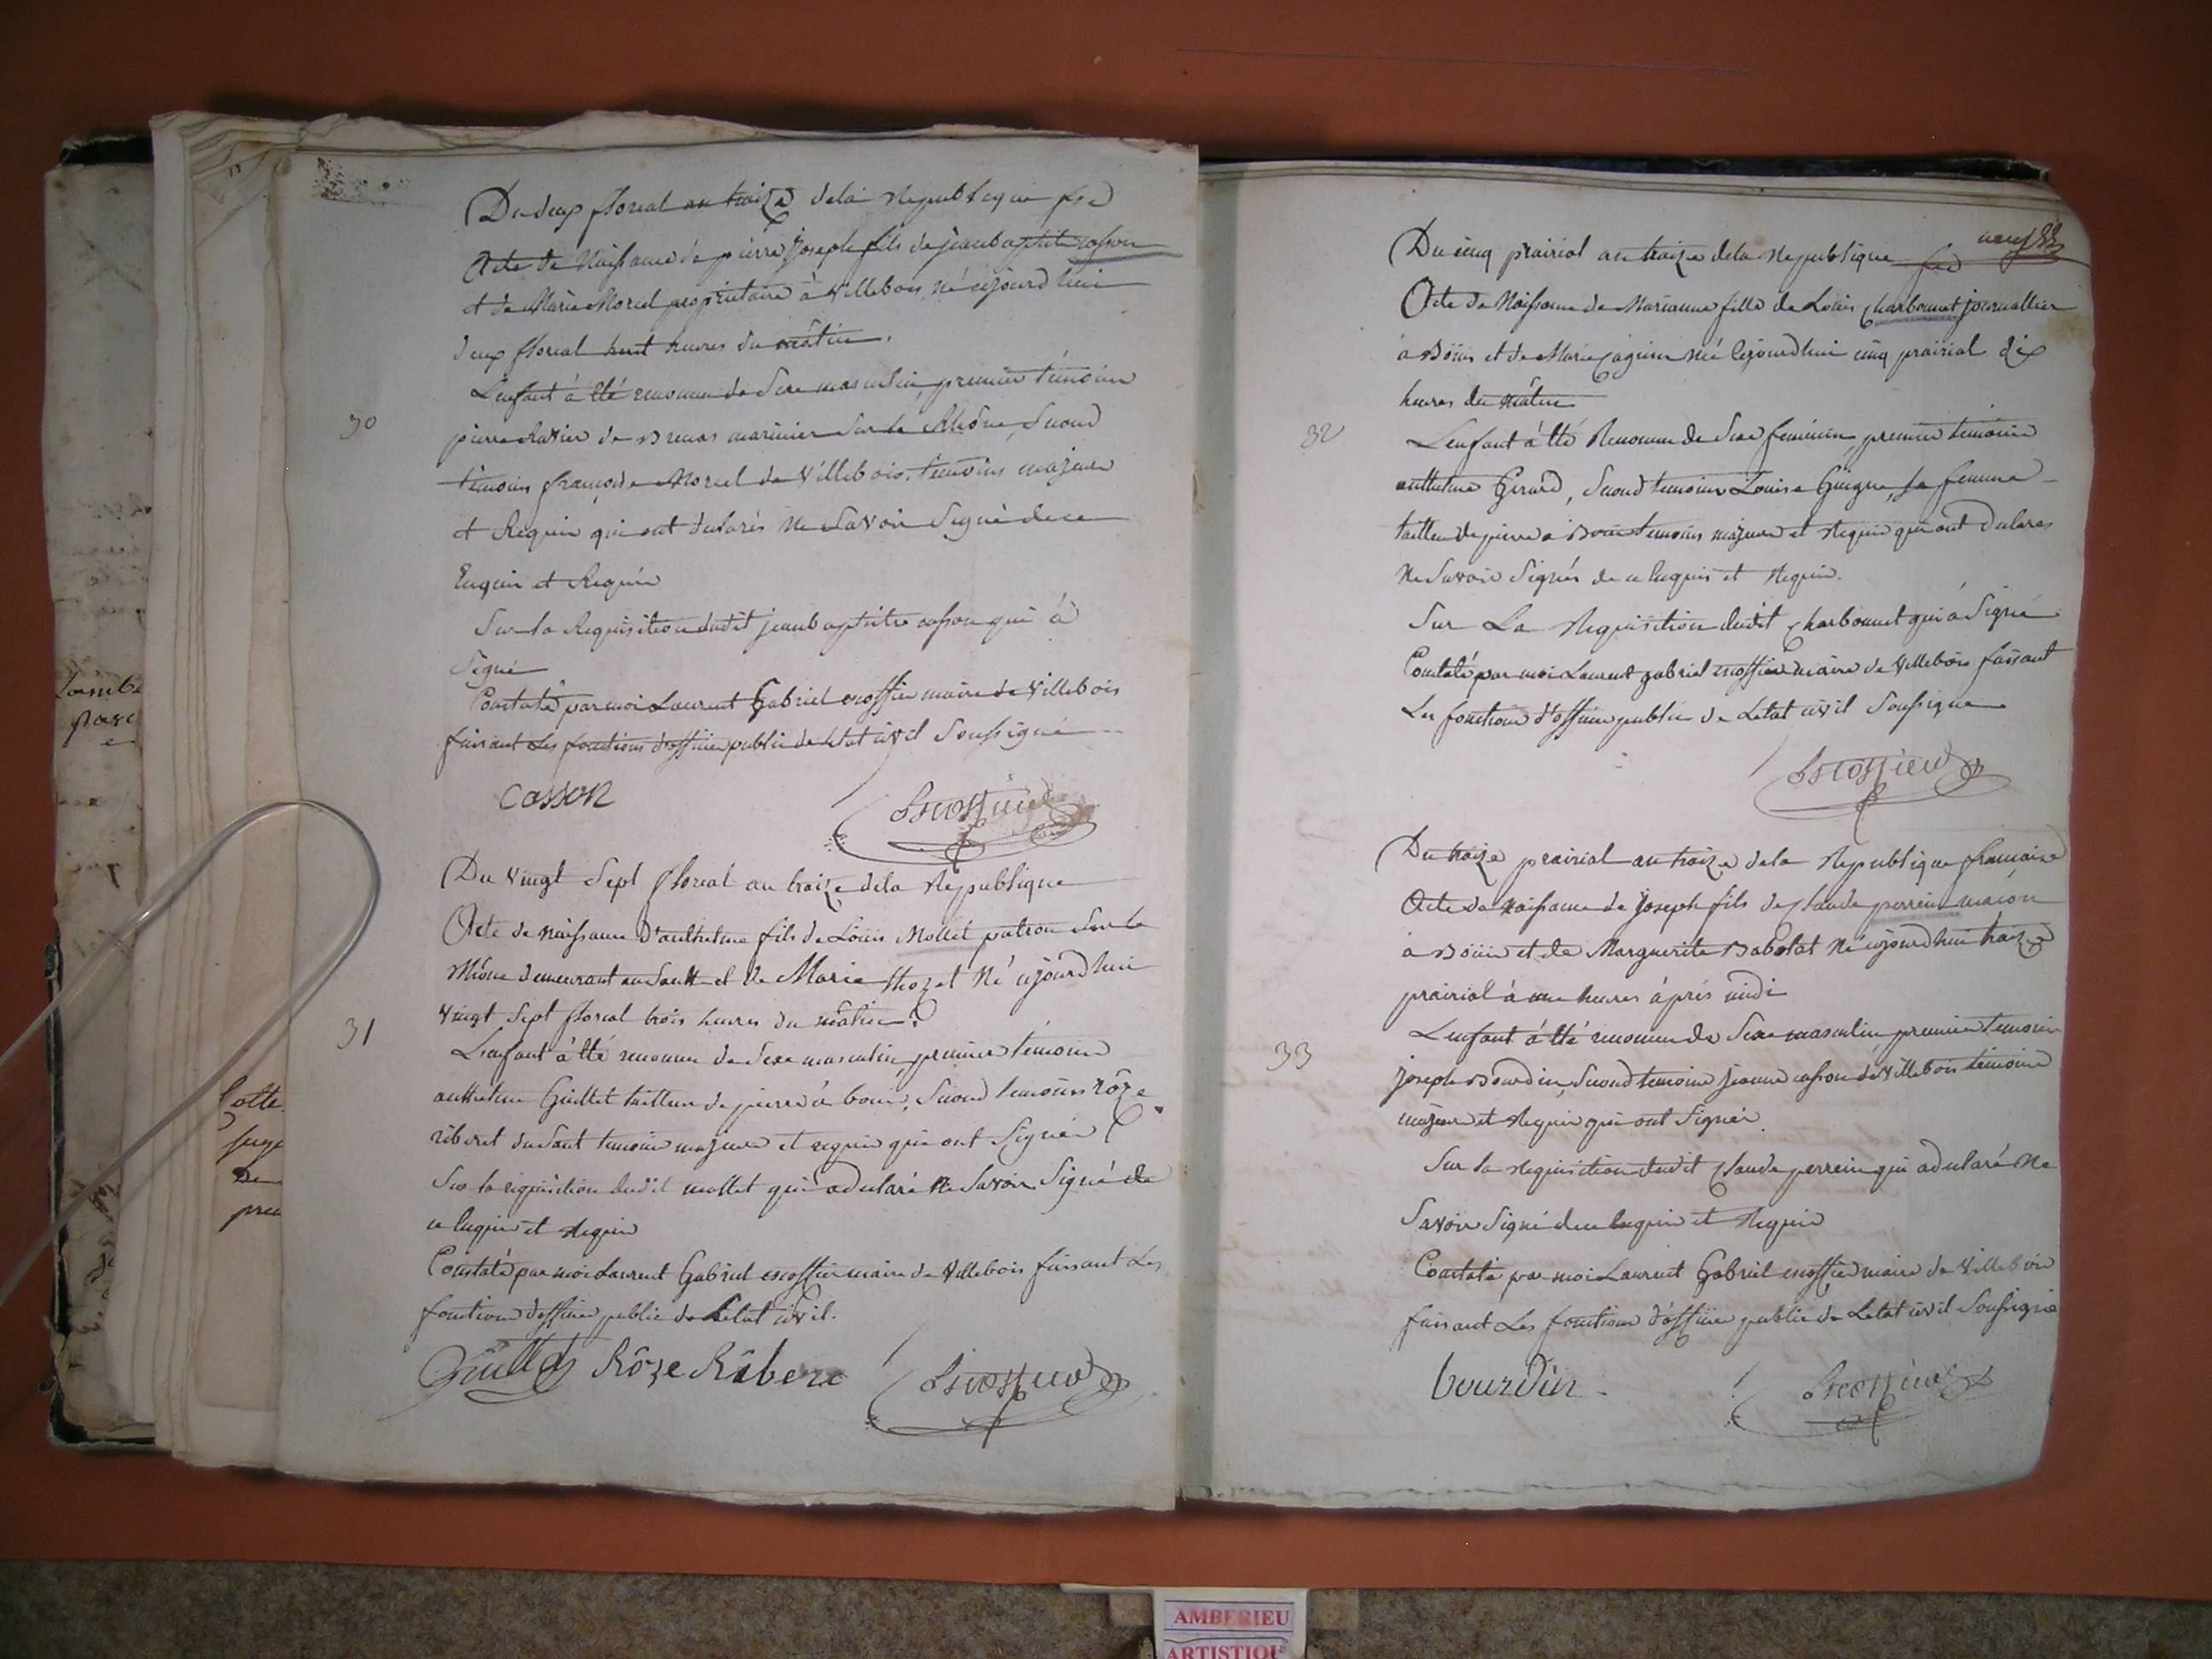 Du deux floreal an treize dela Republique fse
Acte de Naissance de pierre joseph fils de jean baptiste casson
et de Marie Morel propriétaire à Villebois né cejourd'hui
deux floreal huit heures du mâtin.
L'enfant à été reconnu de Sexe masculin, premier témoin
30
pierre Ravier de marinier sur le Rhône, Second
témoin françoise Morel de Villebois. temoins majeur
et Requis qui ont declarés ne Savoir Signé de ce
Enquis et Requis
Sur la Requisition dudit jean baptiste casson qui à
Signé
Constaté par moi Laurent Gabriel escoffier maire de Villebois
faisant Les fonctions d'officier public de letat civil Soussigné
casson
Escoffier
Du Vingt Sept floreal an treize dela Republique
Acte de naissance d'anthelme fils de Louis Mollet patron Sur le
Rhône demeurant au Sault et de Marie thozet Né cejourd'hui
Vingt Sept floreal trois heures du mâtin.
31
L'enfant à été reconnu de Sexe masculin, premier témoin
anthelme Guillet tailleur de pierre à bouis, Second temoins rôze
riberet du Saut temoin majeur et requis qui ont Signér
Sur la requisition dudit mollet qui a declaré Ne Savoir Signé de
ce Enquis et Requis
Constaté par moi Laurent Gabriel escoffier maire de Villebois faisant Les
fonctions d'officier public de Letat civil.
Guillet Rôze Ribere
Escoffier
neuf
Du cinq prairial an treize dela Republique fse
Acte de Naissance de Marianne fille de Louis charbonnet journallier
à Boüis et de Marie né cejourd'hui cinq prairial dix
heures du mâtin
32
L'enfant à été Reconnu de Sexe feminin, premier témoin
anthelme Girard, Second temoins Louise Guigue, sa femme
tailleur de pierre a Bouis temoins majeur et Requis qui ont Declares
Ne Savoir Signés de ce Enquis et Requis.
Sur La Requisition dudit charbonnet qui à Signé
Constaté par moi Laurent gabriel escoffier maire de Villebois faisant
Les fonctions d'officier public de Letat civil Soussigné
Escoffier
Du treize prairial an treize dela Republique française
Acte de Naissance de Joseph fils de claude perrein maçon
à Boüis et de Marguerite Babolat Né cejourd'hui treize
prairial à une heures après midi
L'enfant à été reconnu de Sexe masculin premier temoin
33
joseph Bourdin, Second temoin jeanne casson de Villebois temoins
majeur et Requis qui ont Signér
Sur la Requisition dudit claude perrein qui a declaré Ne
Savoir Signé de ce Enquis et Requis
Constaté par moi Laurent Gabriel escoffier maire de Villebois
faisant Les fonctions d'officier public de Letat civil Soussigné
bourdin
Escoffier
AMBERIEU
ARTISTIQU